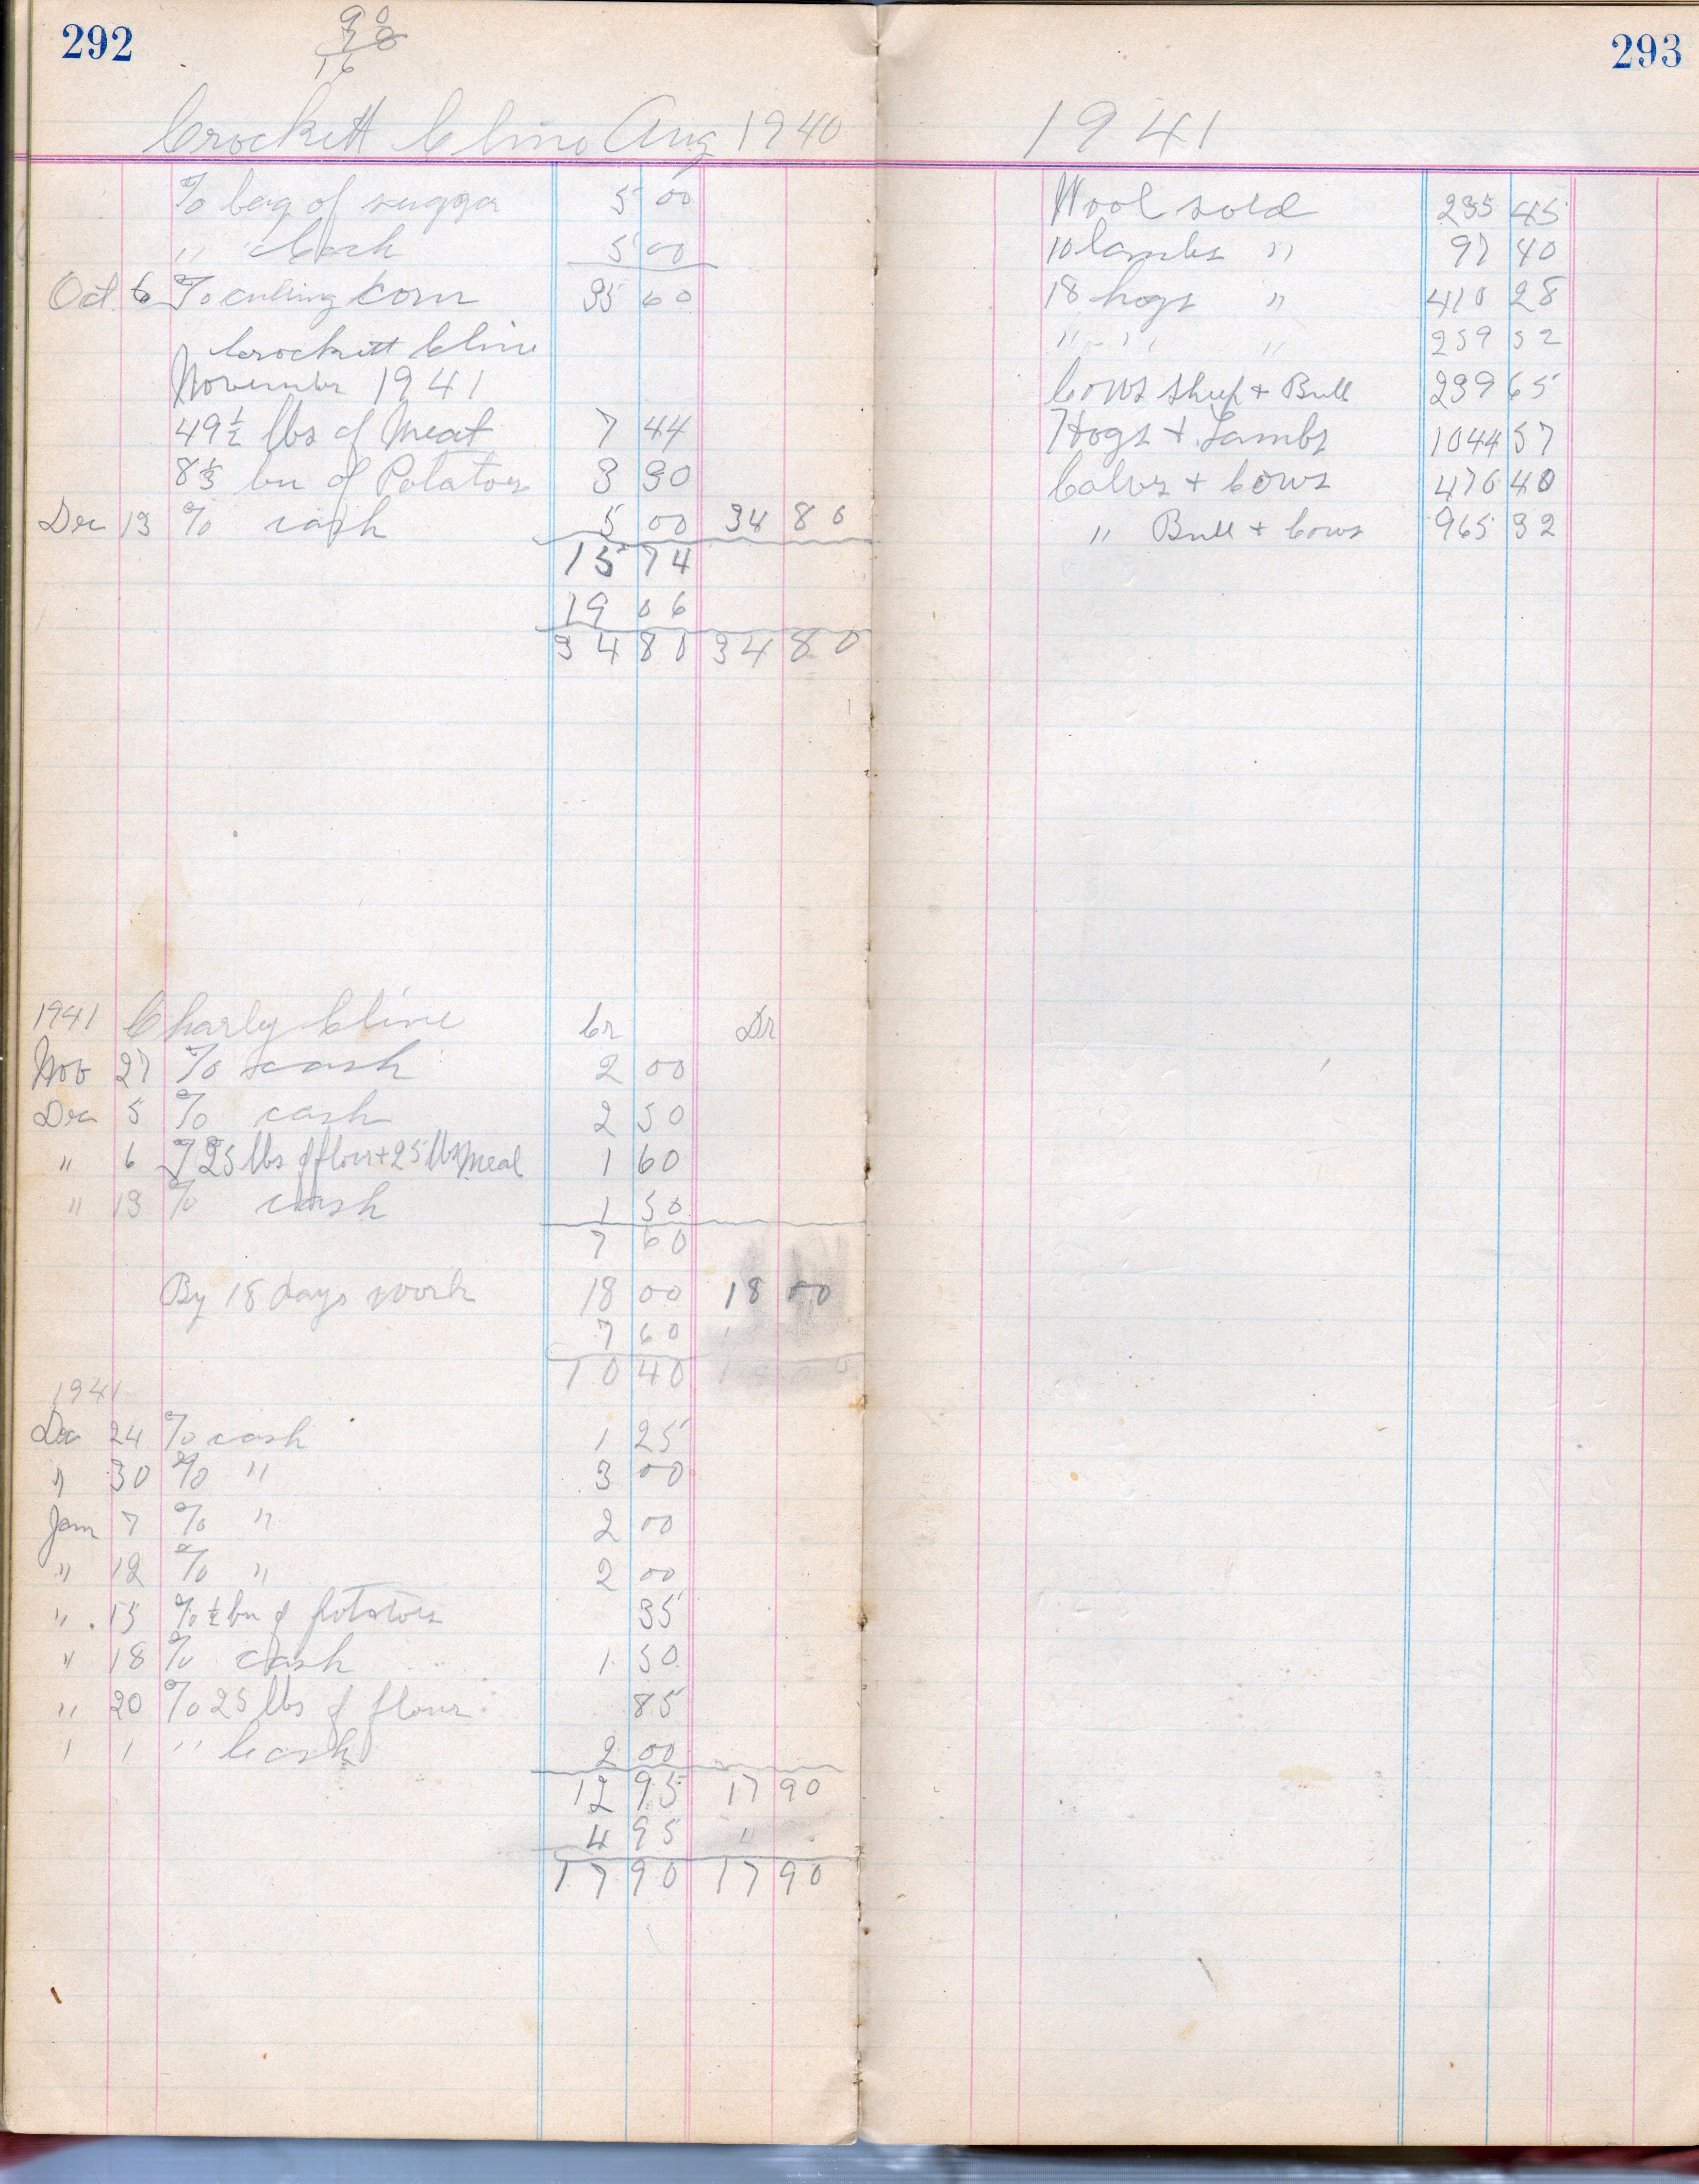 292
90
78
16
Crockett Cline Aug 1940
To bag of sugga 5 00
" Cash 5 00
Oct 6 To cutting corn 35 60
Crockett Cline
November 1941
49 1/2 lbs of Meat 7 44
8 1/3 bu of Potatoes 3 30
Dec 13 To cash 5 00 34 80
15 74
19 06
34 80 34 80
1941 Charly Cline Cr Dr
Nov 27 To cash 2 00
Dec 5 To cash 2 50
" 6 To 25 lbs of flour + 25 lbs Meal 1 60
" 13 To cash 1 50
7 60
By 18 days work 18 00 18 00
7 60
10 40
1941
Dec 24 To cash 1 25
" 30 To " 3 00
Jan 7 To " 2 00
" 12 To " 2 00
" 15 To 1/2 bu of potatoes 35
" 18 To cash 1 50
" 20 To 25 lbs of flour 85
" " " Cash 2 00
12 95 17 90
4 95 "
17 90 17 90
293
1941
Wool sold 235 45
10 lambs " 97 40
18 hogs " 410 28
" " " 259 52
Cows Sheep + Bull 239 65
Hogs + Lambs 1044 57
Calves + Cows 476 40
" Bull + Cows 965 32